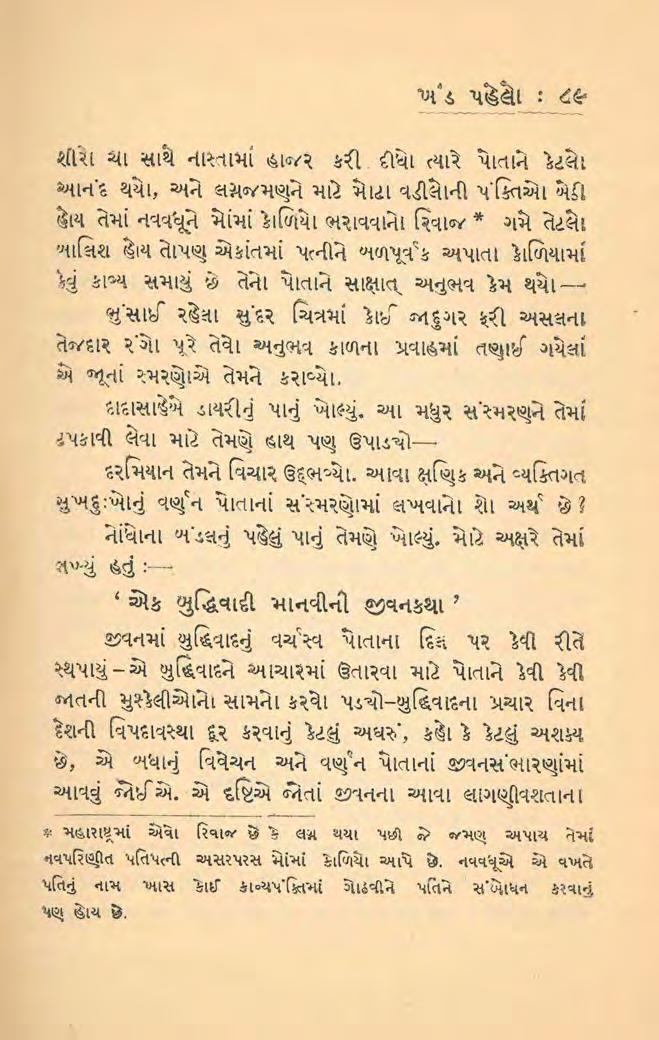 ખંડ પહેલો : ૮૯
શીરો ચા સાથે નાસ્તામાં હાજર કરી દીધો ત્યારે પોતાને કેટલો
આનંદ થયો, અને લગ્નજમણને માટે મોટા વડીલોની પંક્તિઓ બેઠી
હોય તેમાં નવવધૂને મોંમાં કોળિયો ભરાવવાનો રિવાજ * ગમે તેટલો
બાલિશ હોય તોપણ એકાંતમાં પત્નીને બળપૂર્વક અપાતા કોળિયામાં
કેવું કાવ્ય સમાયું છે તેનો પોતાને સાક્ષાત્ અનુભવ કેમ થયો—
ભુંસાઈ રહેલા સુંદર ચિત્રમાં કોઈ જાદુગર ફરી અસલના
તેજદાર રંગો પૂરે તેવો અનુભવ કાળના પ્રવાહમાં તણાઈ ગયેલાં
એ જૂનાં સ્મરણોએ તેમને કરાવ્યો.
દાદાસાહેબે ડાયરીનું પાનું ખોલ્યું. આ મધુર સંસ્મરણને તેમાં
ટપકાવી લેવા માટે તેમણે હાથ પણ ઉપાડ્યો—
દરમિયાન તેમને વિચાર ઉદ્ભવ્યો. આવા ક્ષણિક અને વ્યક્તિગત
સુખદુઃખોનું વર્ણન પોતાનાં સંસ્મરણોમાં લખવાનો શો અર્થ છે ?
નોંધોના બંડલનું પહેલું પાનું તેમણે ખોલ્યું. મોટે અક્ષરે તેમાં
લખ્યું હતું :—
‘ એક બુદ્ધિવાદી માનવીની જીવનકથા ’
જીવનમાં બુદ્ધિવાદનું વર્ચસ્વ પોતાના દિલ પર કેવી રીતે
સ્થપાયું – એ બુદ્ધિવાદને આચારમાં ઉતારવા માટે પોતાને કેવી કેવી
જાતની મુશ્કેલીઓનો સામનો કરવો પડ્યો–બુદ્ધિવાદના પ્રચાર વિના
દેશની વિપદાવસ્થા દૂર કરવાનું કેટલું અઘરું, કહો કે કેટલું અશક્ય
છે, એ બધાનું વિવેચન અને વર્ણન પોતાનાં જીવનસંભારણાંમાં
આવવું જોઈએ. એ દૃષ્ટિએ જોતાં જીવનના આવા લાગણીવશતાના
* મહારાષ્ટ્રમાં એવો રિવાજ છે કે લગ્ન થયા પછી જે જમણ અપાય તેમાં
નવપરિણીત પતિપત્ની અસરપરસ મોંમાં કોળિયો આપે છે. નવવધૂએ એ વખતે
પતિનું નામ ખાસ કોઈ કાવ્યપંક્તિમાં ગોઠવીને પતિને સંબોધન કરવાનું
પણ હોય છે.